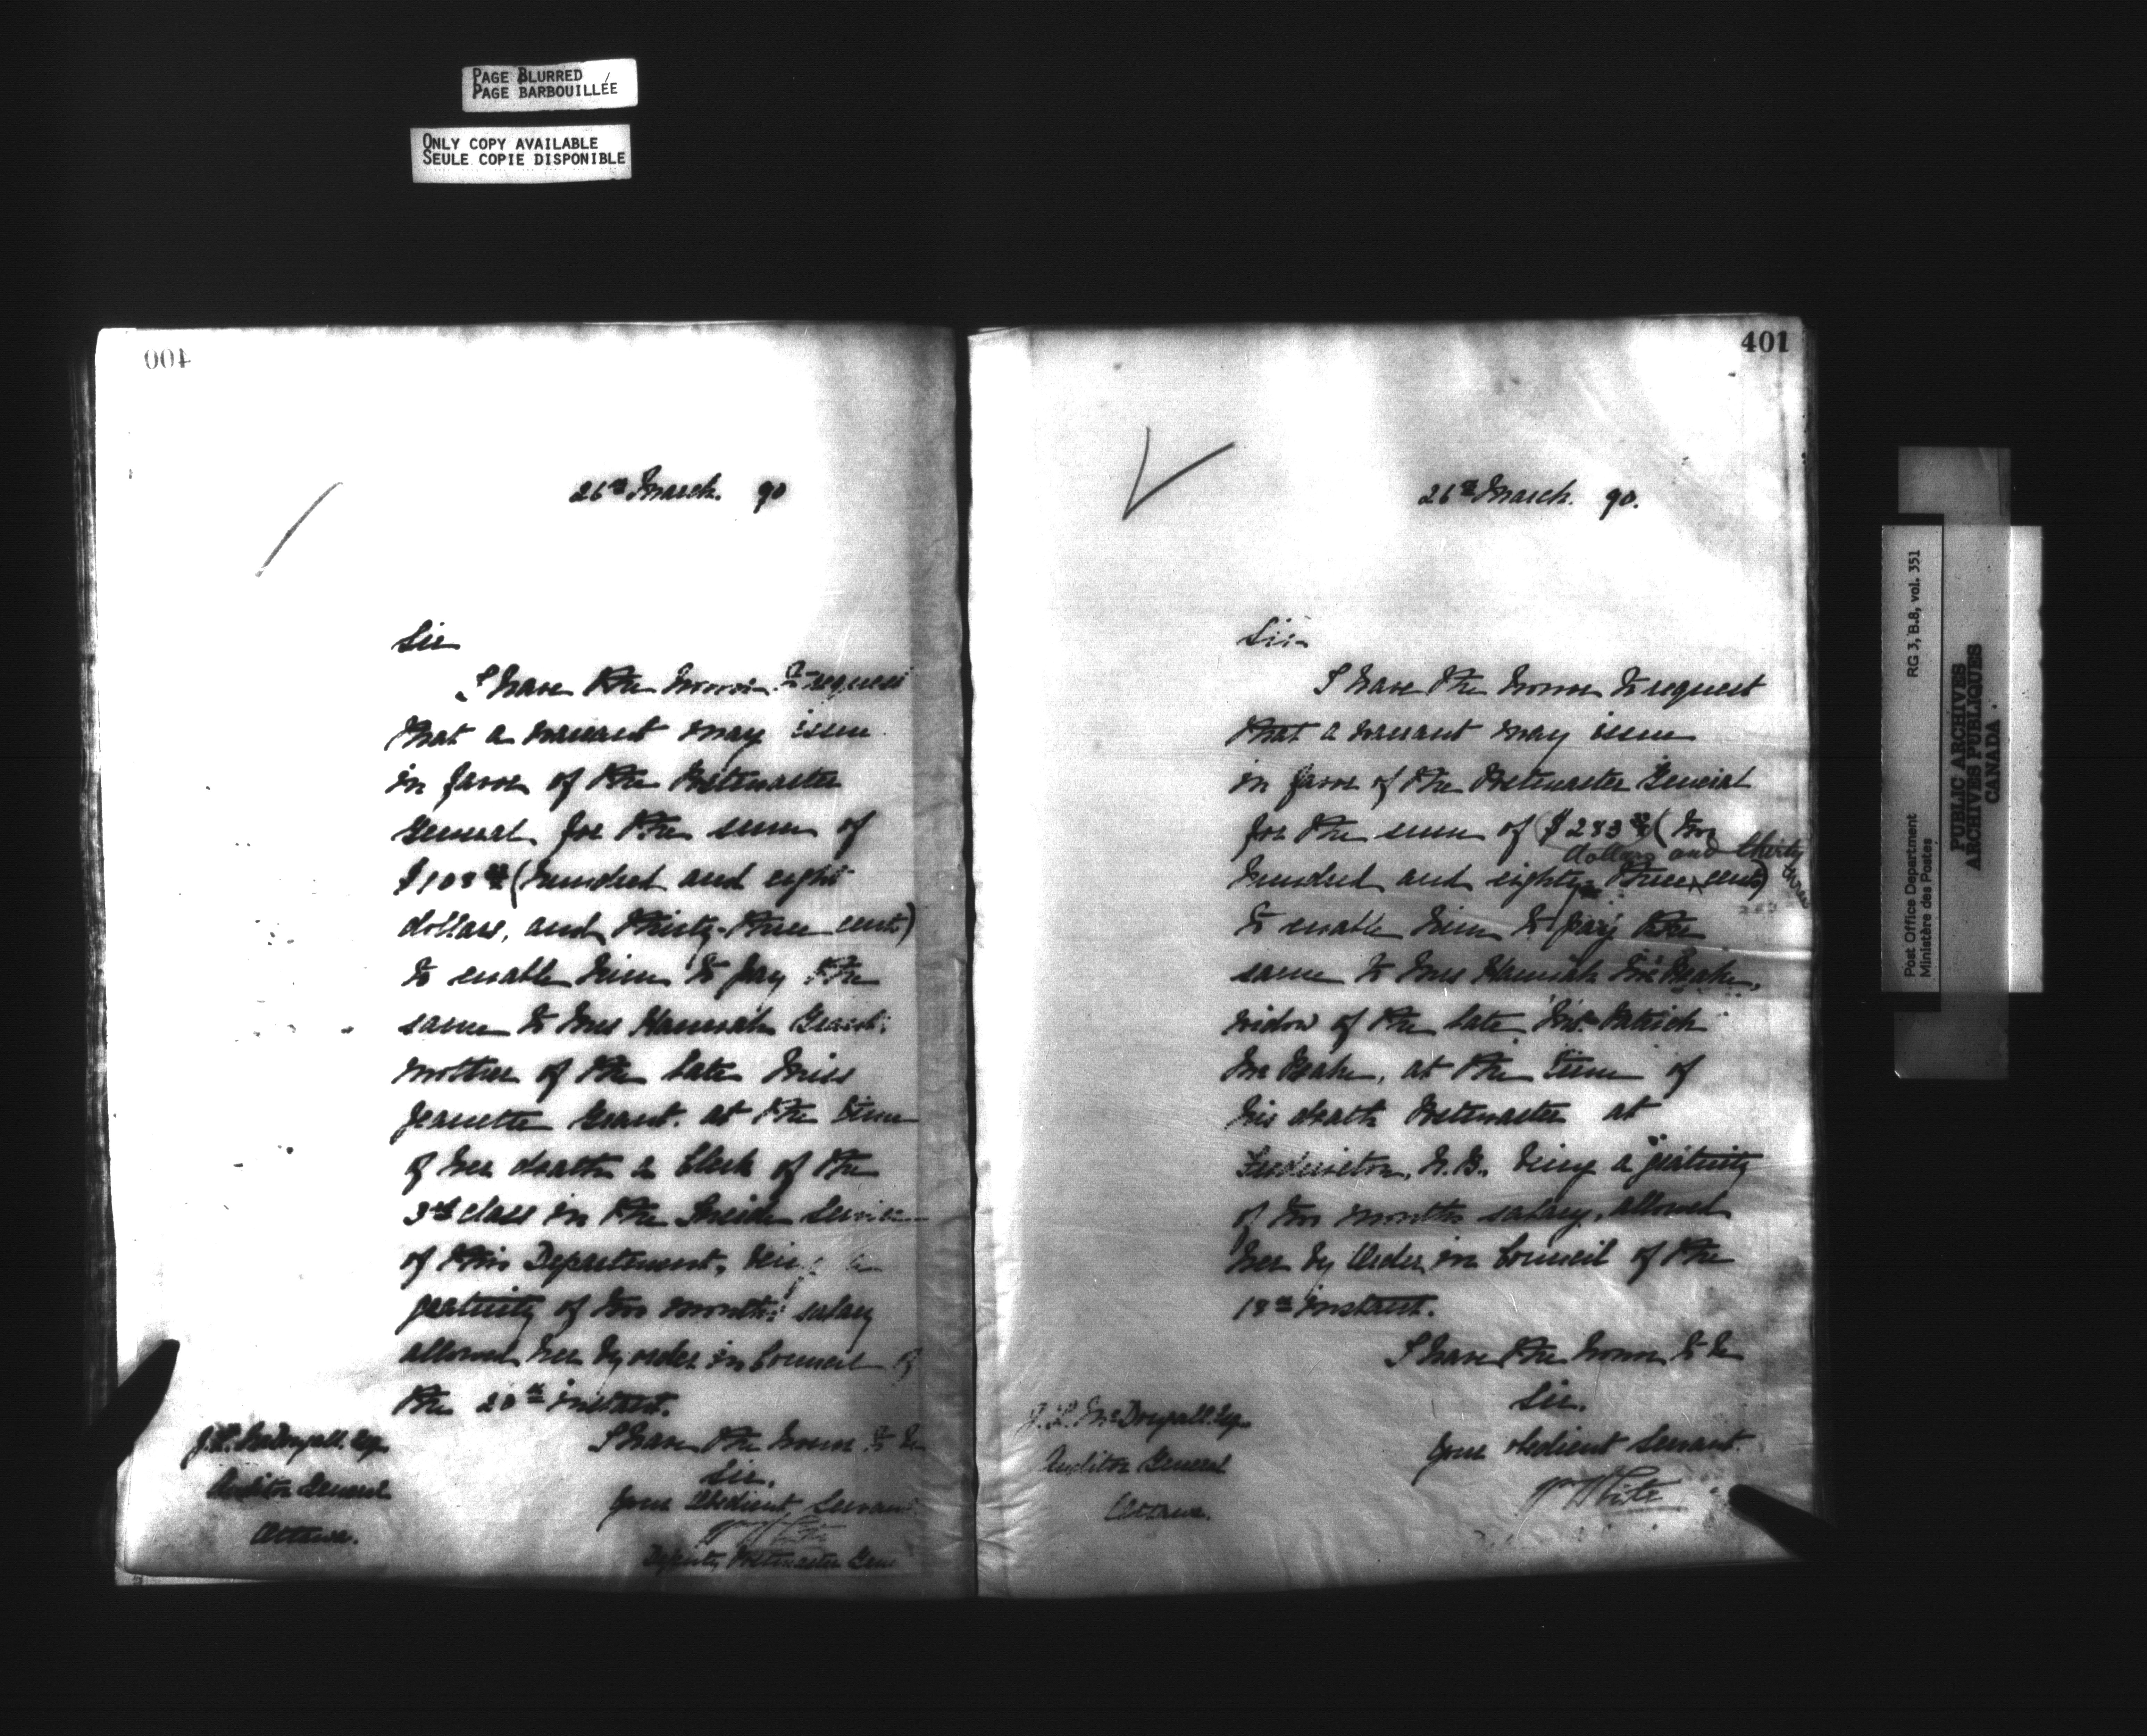 PAGE BLURRED
PAGE BARBOUILLÉE
ONLY COPY AVAILABLE
SEULE COPIE DISPONIBLE
400
26th March. 90
Sir
I have the honor to request
that a warrant may issue
in favor of the Postmaster
General for the sum of
$108 33/ (hundred and eight
dollars, and thirty-three cents)
to enable him to pay the
same to Mrs Hannah Grant.
mother of the late Miss
Jeanette Grant. at the time
of her death a Clerk of the
3rd class in the Inside Service
of this Department, being a
gratuity of two months salary
allowed her by order in Council of
the 20th instant.
I have the honor to be
Sir.
Your Obedient Servant
W White
Deputy Postmaster Gene
J.L. McDougall. Esq.
Auditor General
Ottawa.
401
26th March. 90.
Sir
I have the honor to request
that a warrant may issue
in favor of the Postmaster General
for the sum of $283 33/ (two
hundred and eighty three dollars and thirty three cents)
to enable him to pay the
same to Mrs Hannah McPeake,
widow of the late Mr. Patrick
McPeake, at the time of
his death Postmaster at
Fredericton, N.B. being a gratuity
of two months salary, allowed
her by Order in Council of the
18th instant.
I have the honor to be
Sir.
Your obedient Servant.
W White
J.L. McDougall. Esq.
Auditor General
Ottawa.
Post Office Department
Ministère des Postes
RG 3, B.8, vol. 351
PUBLIC ARCHIVES
ARCHIVES PUBLIQUES
CANADA